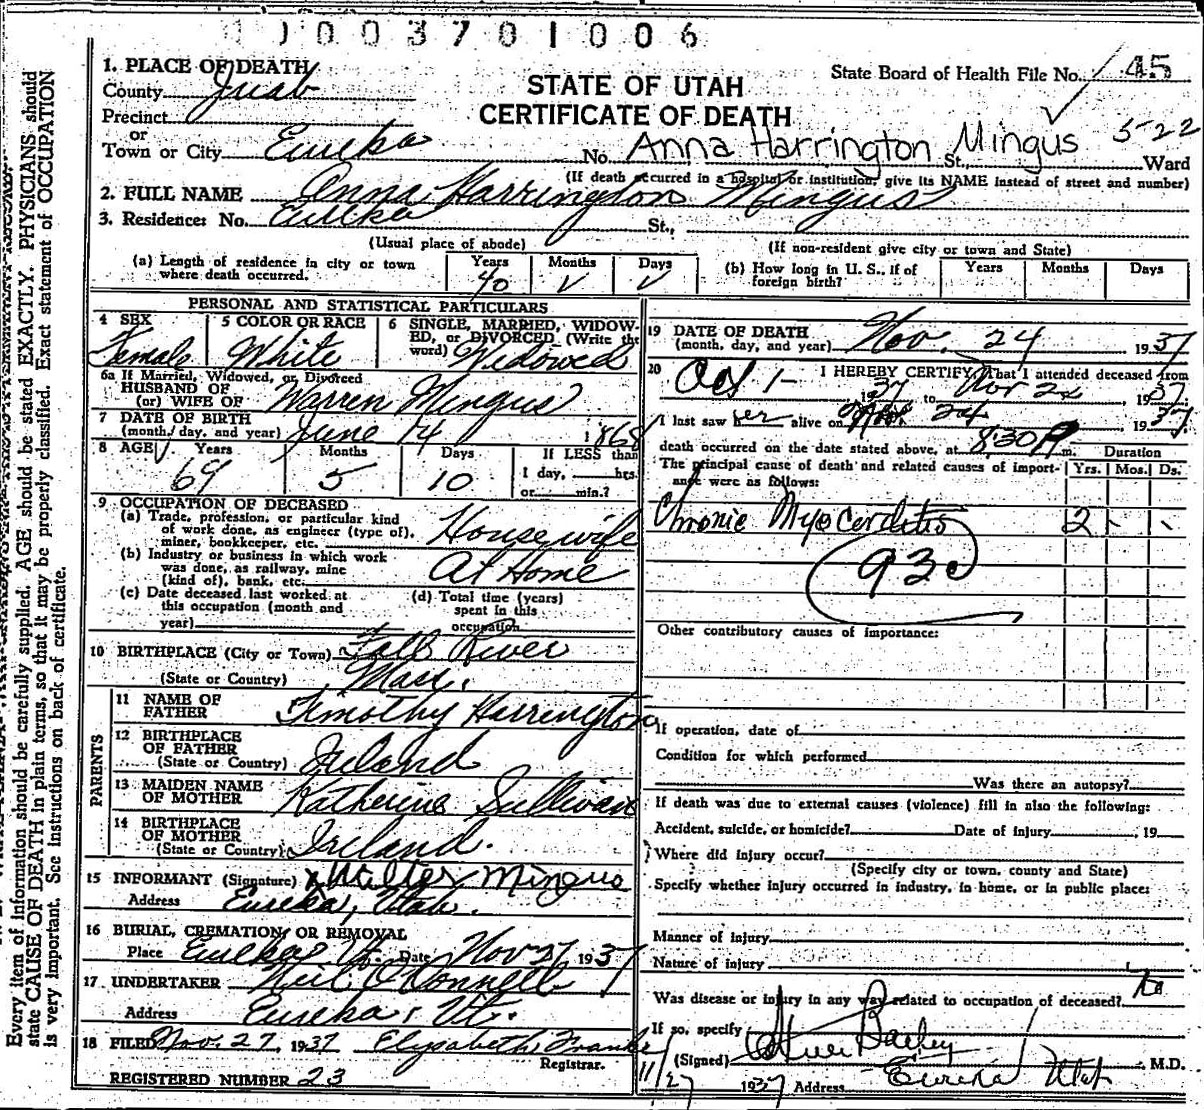 1003701006
1. PLACE OF DEATH
County Juab
State Board of Health File No. 45
STATE OF UTAH
CERTIFICATE OF DEATH
Precinct
or
Town or City Eureka No. Anna Harrington Mingus St., 5-22 Ward
(If death occurred in a hospital or institution, give its NAME instead of street and number)
2. FULL NAME Anna Harrington Mingus
3. Residence: No. Eureka St.,
(Usual place of abode) (If non-resident give city or town and State)
(a) Length of residence in city or town where death occurred. Years 40 Months Days
(b) How long in U. S., if of foreign birth? Years Months Days
PERSONAL AND STATISTICAL PARTICULARS
4 SEX Female
5 COLOR OR RACE White
6 SINGLE, MARRIED, WIDOWED, or DIVORCED (Write the word) Widowed
6a If Married, Widowed, or Divorced
HUSBAND OF
(or) WIFE OF Warren Mingus
7 DATE OF BIRTH
(month, day, and year) June 14 1868
8 AGE Years 69 Months 5 Days 10 If LESS than 1 day, hrs. or min.?
9 OCCUPATION OF DECEASED
(a) Trade, profession, or particular kind of work done, as engineer (type of), miner, bookkeeper, etc. Housewife
(b) Industry or business in which work was done, as railway, mine (kind of), bank, etc. At Home
(c) Date deceased last worked at this occupation (month and year)
(d) Total time (years) spent in this occupation
10 BIRTHPLACE (City or Town) Fall River
(State or Country) Mass.
PARENTS
11 NAME OF FATHER Timothy Harrington
12 BIRTHPLACE OF FATHER (State or Country) Ireland
13 MAIDEN NAME OF MOTHER Katherine Sullivan
14 BIRTHPLACE OF MOTHER (State or Country) Ireland.
15 INFORMANT (Signature) x Walter Mingus
Address Eureka, Utah.
16 BURIAL, CREMATION, OR REMOVAL
Place Eureka, Ut. Date Nov 27 1937
17 UNDERTAKER Neil O'Donnell
Address Eureka, Ut.
18 FILED Nov. 27, 1937 Elysabeth Franke
Registrar.
REGISTERED NUMBER 23
19 DATE OF DEATH
(month, day, and year) Nov. 24 1937
20 I HEREBY CERTIFY, That I attended deceased from
Oct 1- 37 to Nov 24, 1937.
I last saw her alive on Nov 24 1937
death occurred on the date stated above, at 8:30 P m.
The principal cause of death and related causes of importance were as follows:
Duration
Yrs. Mos. Ds.
Chronic Myocarditis 2 - -
93c
Other contributory causes of importance:
If operation, date of
Condition for which performed
Was there an autopsy?
If death was due to external causes (violence) fill in also the following:
Accident, suicide, or homicide? Date of injury , 19
Where did injury occur?
(Specify city or town, county and State)
Specify whether injury occurred in industry, in home, or in public place:
Manner of injury
Nature of injury
Was disease or injury in any way related to occupation of deceased? No
If so, specify
(Signed) Steele Bailey M.D.
11/27 1937 Address Eureka Utah
Every item of information should be carefully supplied. AGE should be stated EXACTLY. PHYSICIANS should
state CAUSE OF DEATH in plain terms, so that it may be properly classified. Exact statement of OCCUPATION
is very important. See instructions on back of certificate.